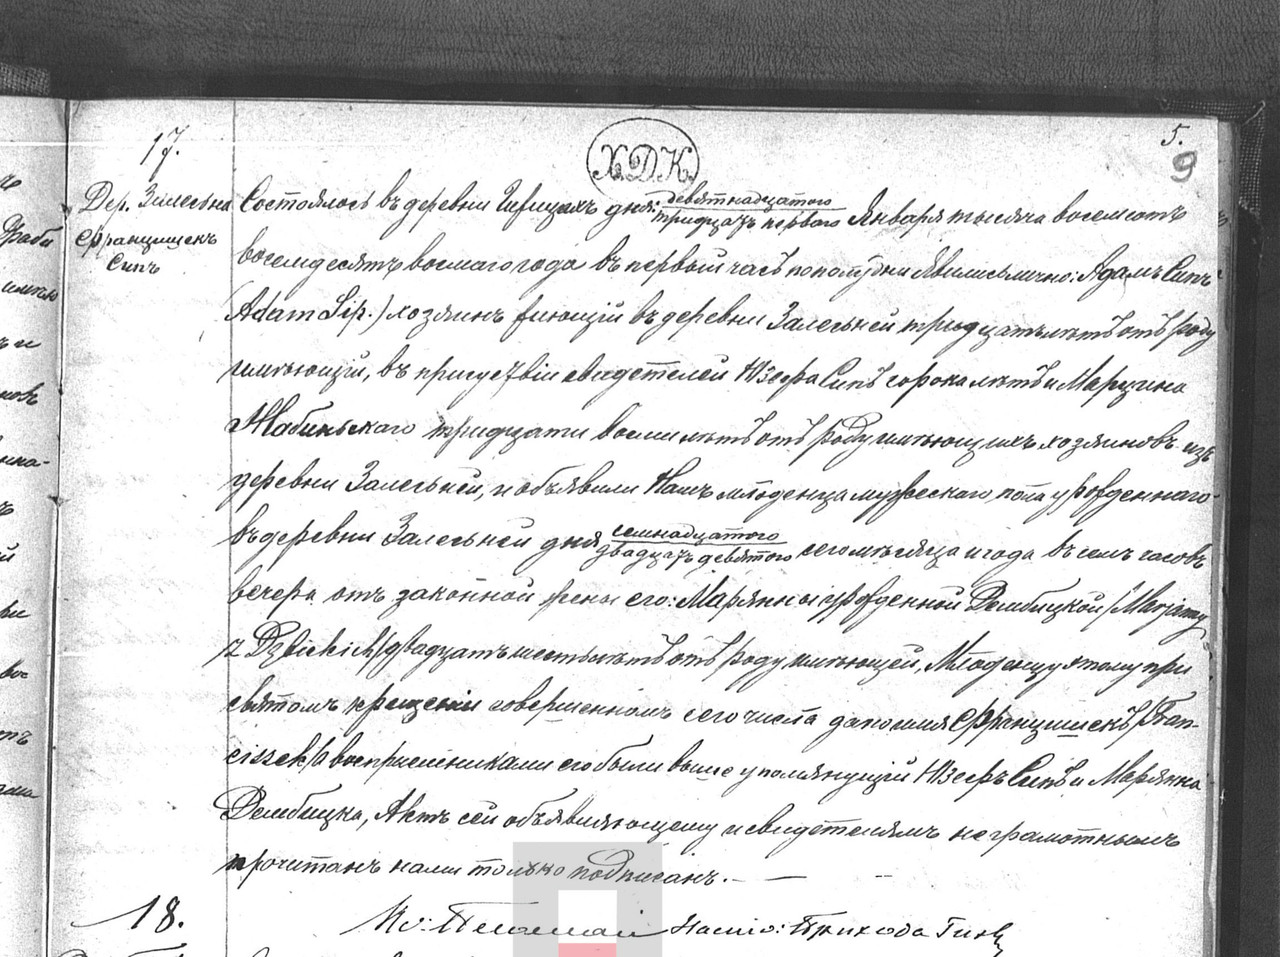 5.
9
17.
Х.Д.К.
Дер. Залесьна
Францишекъ
Сипъ
Состоялось въ деревни дня: девятнадцатого
тридцать первого Января тысяча восемсотъ
восемдесятъ восмаго года въ первый часъ пополудни явились лично: Адамъ Сипъ
(Adam Sip.) хозяинъ жиющій въ деревни Залесьней тридцать лѣтъ отъ роду
имѣющій, въ присуствіи свидетелей Юзефа Сипъ сорока лѣтъ и Марцина
Жабиньскаго тридцати восми лѣтъ отъ роду имѣющихъ хозяиновъ изъ
деревни Залесьней, и объявили Намъ младенца мужескаго пола урожденнаго
въ деревни Залесьней дня семнадцатого
двадцать девятого сего мѣсяца и года въ семъ часовъ
вечера отъ законной жены его: Марянны урожденной Дембицкой /Marjanny
z Dębickich/ двадцать шесть лѣтъ отъ роду имѣющей, Младенцу этому при
святомъ крещеніи совершенномъ сего числа дано имя Францишекъ /Fran-
ciszek/ а воспріемниками его были выше упомянущій Юзефъ Сипъ и Марянна
Дембицка, Актъ сей объявляющему и свидетелямъ неграмотнымъ
прочитанъ нами только подписанъ.—
18.
Кс: Насто: Прихода